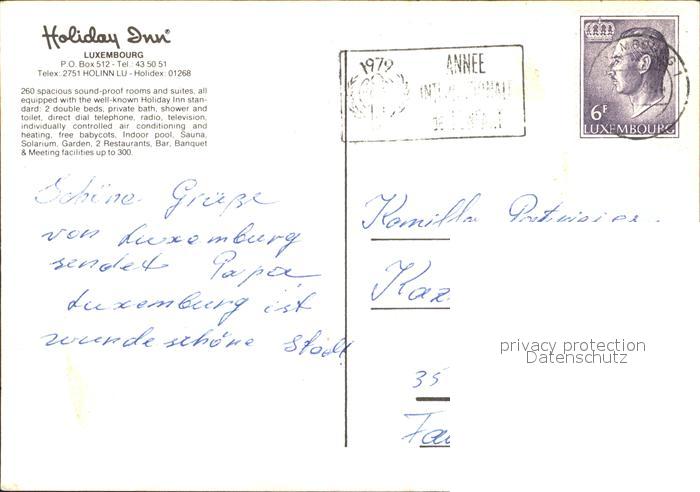 Holiday Inn®
LUXEMBOURG
P.O. Box 512 - Tel.: 43 50 51
Telex: 2751 HOLINN LU - Holidex: 01268
260 spacious sound-proof rooms and suites, all
equipped with the well-known Holiday Inn stan-
dard: 2 double beds, private bath, shower and
toilet, direct dial telephone, radio, television,
individually controlled air conditioning and
heating, free babycots, Indoor pool, Sauna,
Solarium, Garden, 2 Restaurants, Bar, Banquet
& Meeting facilities up to 300.
Schöne Grüße
von Luxemburg
sendet Papa
Luxemburg ist
wunde schöne Stadt
1979
ANNEE
6F
LUXEMBOURG
Kamilla
Kaz
35
privacy protection
Datenschutz